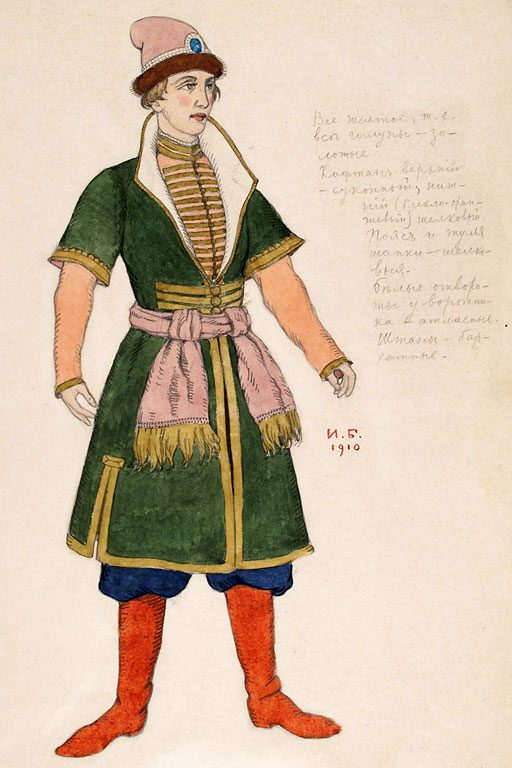 Все желтое, т. е.
все галуны – зо-
лотые.
Кафтанъ верхній
– суконный, ниж-
ній (блекло-оран-
жевый) шелковый.
Поясъ и тулья
шапки – шелко-
выя.
Бѣлые отворо-
ты у воротни-
ка атласные.
Штаны – бар-
хатные.
И.Б.
1910